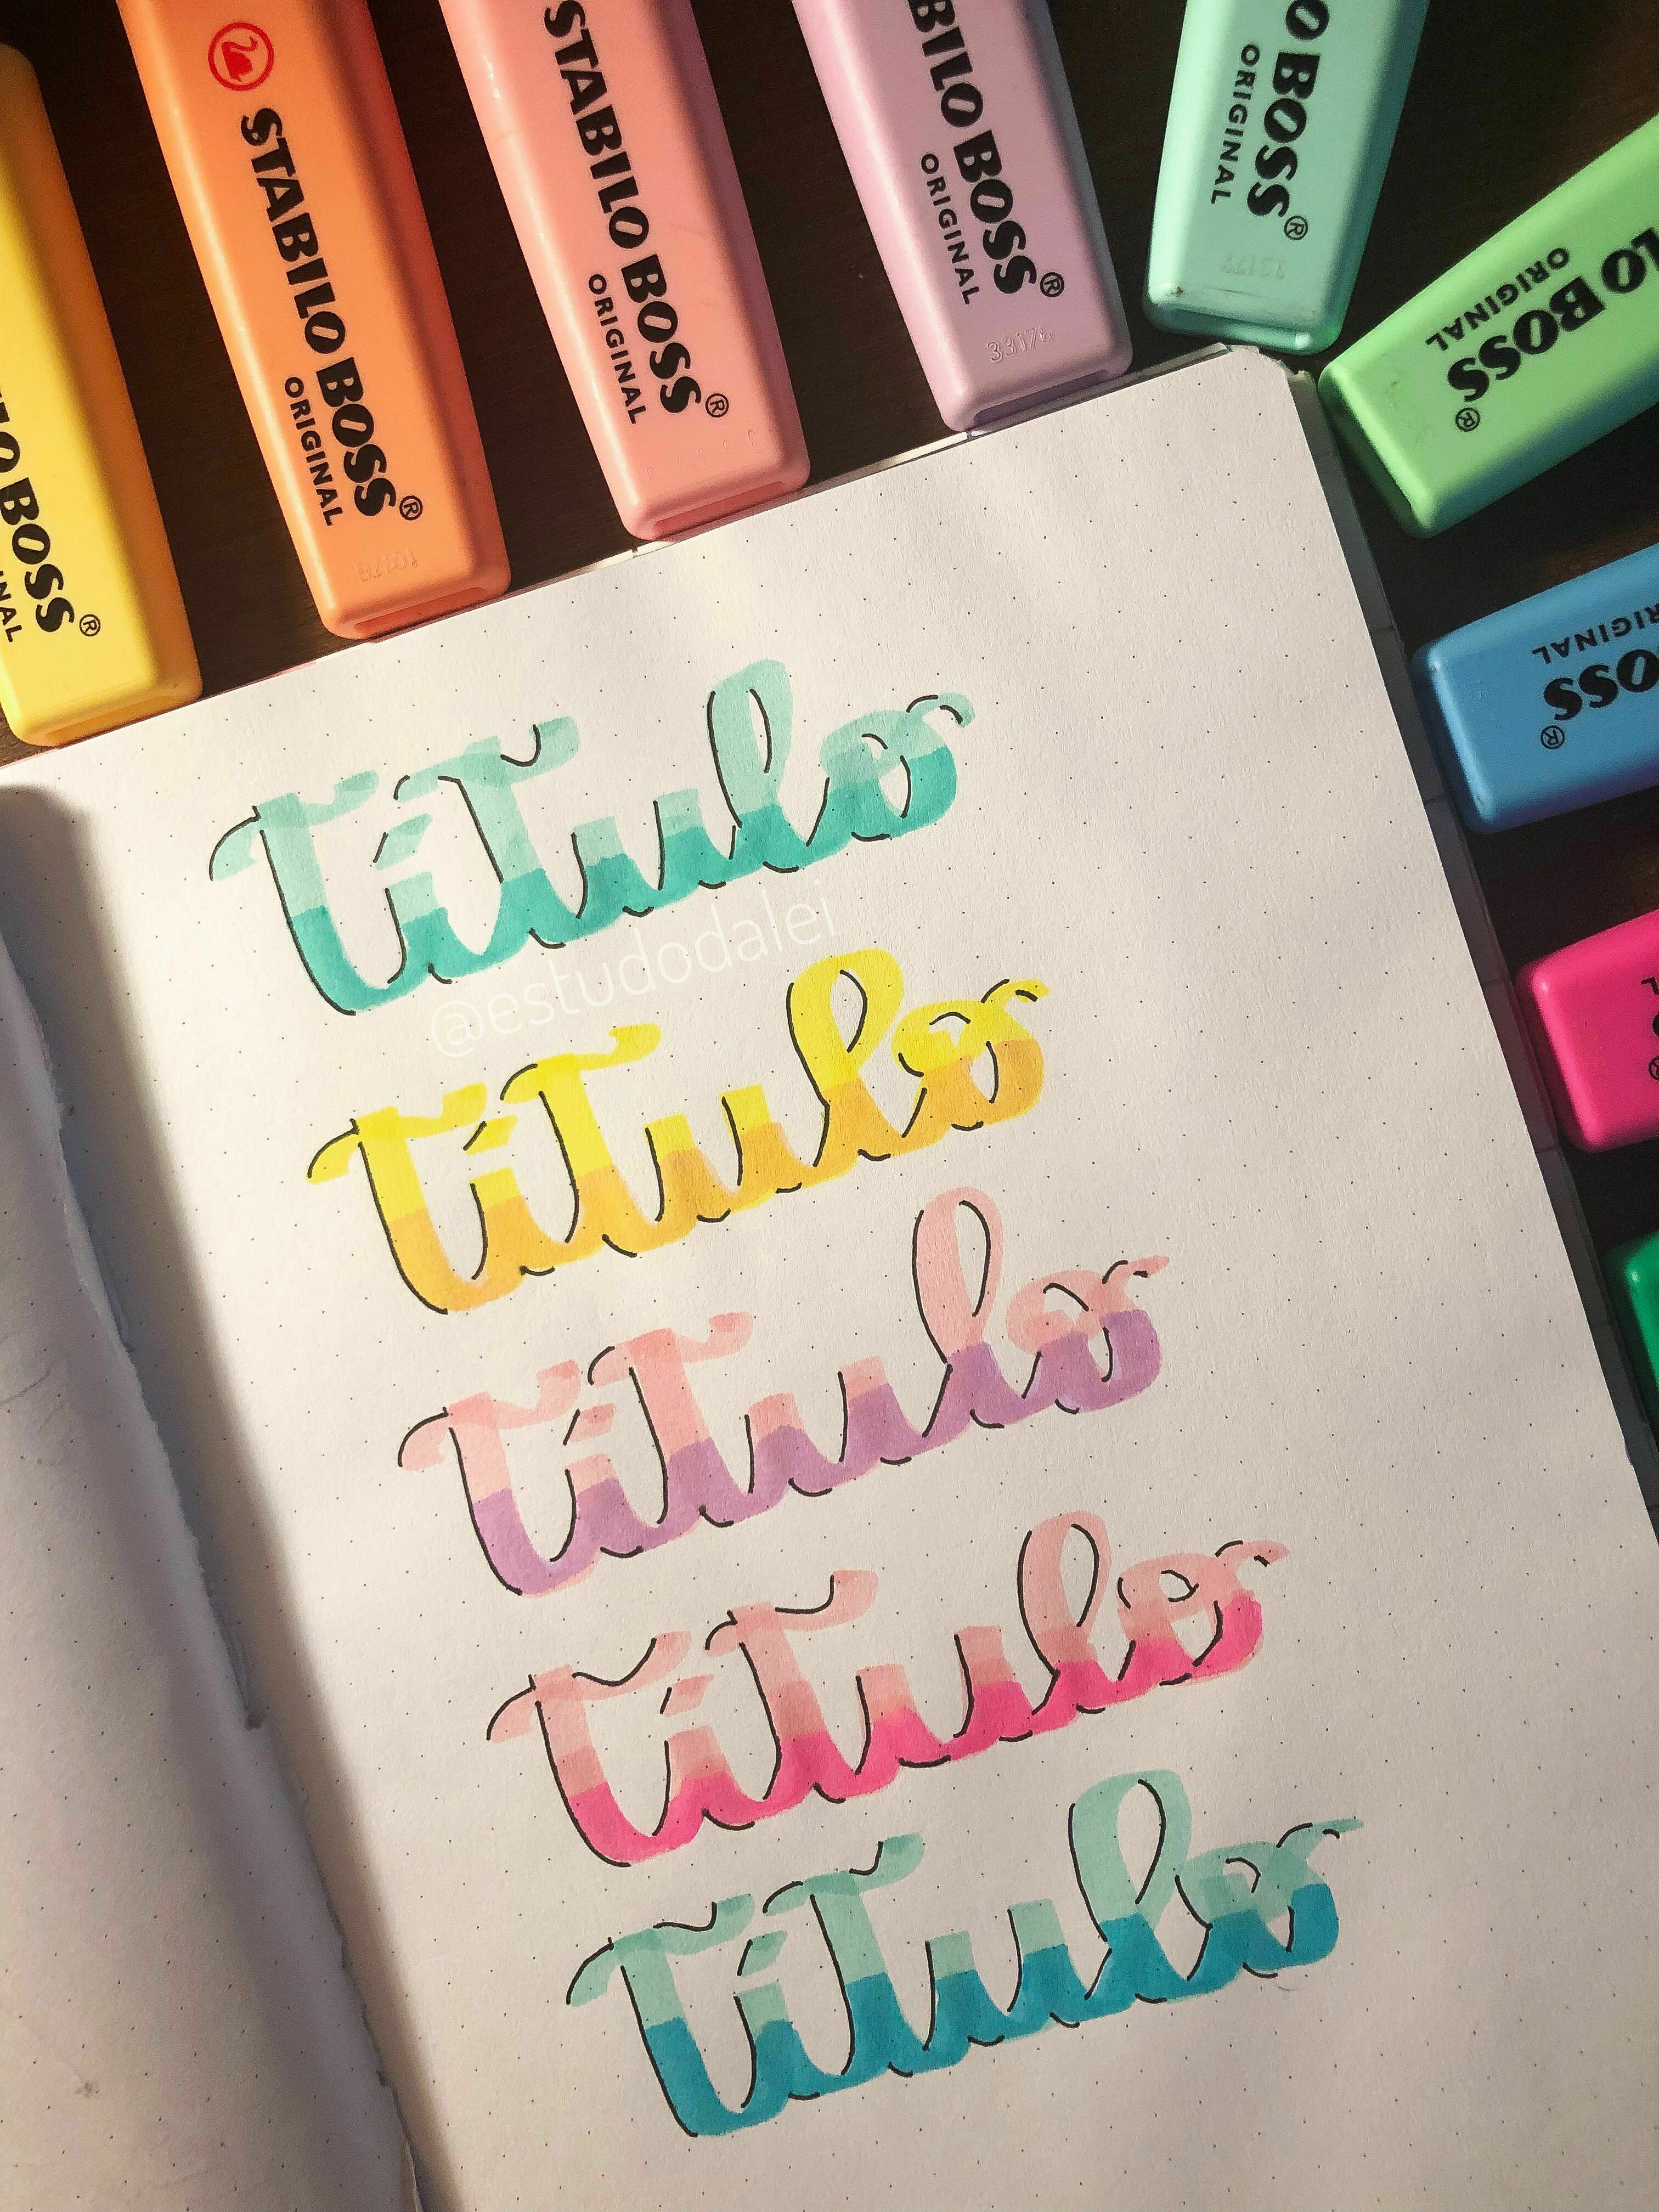 LO BOSS®
INAL
STABILO BOSS®
ORIGINAL
10176
STABILO BOSS®
ORIGINAL
BILO BOSS®
ORIGINAL
33176
O BOSS®
ORIGINAL
13177
LO BOSS®
ORIGINAL
OSS®
RIGINAL
L
®
Título
@estudodalei
Título
Título
Título
Título